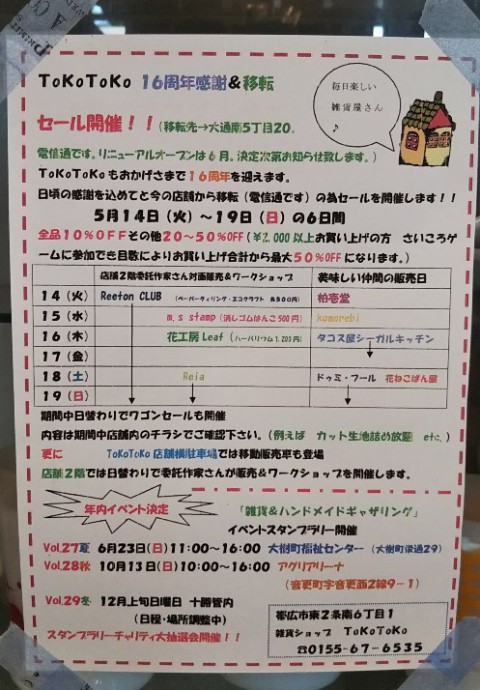 ToKoToKo 16周年感謝&移転
毎日楽しい
雑貨屋さん
♪
セール開催！！(移転先→大通南5丁目20.
電信通です。リニューアルオープンは6月。決定次第お知らせ致します。)
ToKoToKoもおかげさまで16周年を迎えます。
日頃の感謝を込めてと今の店舗から移転(電信通です)の為セールを開催します！！
5月14日(火)～19日(日)の6日間
全品10%OFFその他20～50%OFF(¥2,000以上お買い上げの方 さいころゲ
ームに参加でき目数によりお買い上げ合計から最大50%OFFになります。)
店舗2階委託作家さん対面販売&ワークショップ 美味しい仲間の販売日
14(火) Reeton CLUB (ペーパークイリング・エコクラフト 各500円) 柏壱堂
15(水) m,s stamp(消しゴムはんこ500円) komorebi
16(木) 花工房Leaf(ハーバリウム1,200円) タコス屋シーガルキッチン
17(金)
18(土) Reia ドゥミ・フール 花ねこぱん屋
19(日)
期間中日替わりでワゴンセールも開催
内容は期間中店舗内のチラシでご確認下さい。(例えば カット生地詰め放題 etc.)
更に ToKoToKo店舗横駐車場では移動販売車も登場
店舗2階では日替わりで委託作家さんが販売&ワークショップを開催します。
年内イベント決定
「雑貨&ハンドメイドギャザリング」
イベントスタンプラリー開催
Vol.27夏 6月23日(日)11:00～16:00 大樹町福祉センター (大樹町栄通29)
Vol.28秋 10月13日(日)10:00～16:00 アグリアリーナ
(音更町字音更西2線9-1)
Vol.29冬 12月上旬日曜日 十勝管内
(日程・場所調整中)
スタンプラリーチャリティ大抽選会開催！！
帯広市東2条南6丁目1
雑貨ショップ ToKoToKo
☎0155-67-6535